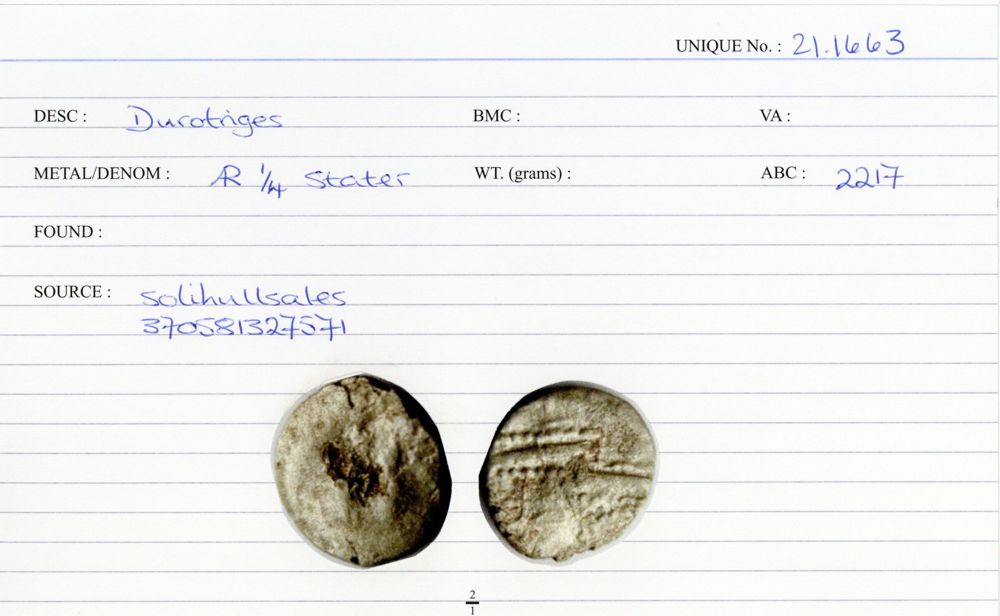 UNIQUE No. : 21.1663
DESC : Durotriges BMC : VA :
METAL/DENOM : AR 1/4 Stater WT. (grams) : ABC : 2217
FOUND :
SOURCE : solihullsales
370581327571
2
1